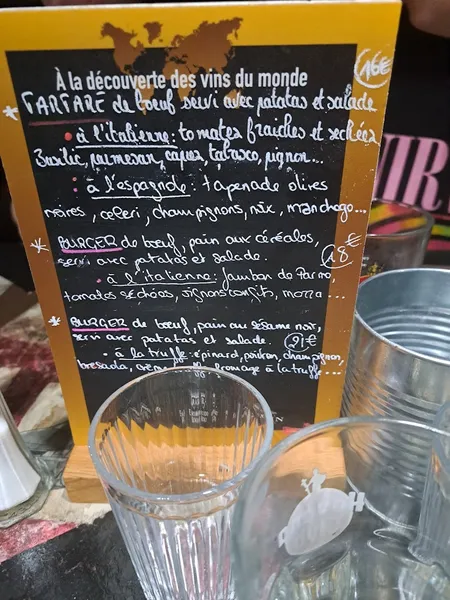 À la découverte des vins du monde
16€
TARTARE de bœuf servi avec patatas et salade
à l'italienne : tomates fraîches et séchées,
Basilic, parmesan, capres, tabasco, pignon...
à l'espagnole : tapenade olives
noires, celeri, champignons, noix, manchego...
BURGER de bœuf, pain aux céréales,
servi avec patatas et salade. 18€
à l'italienne : Jambon de Parme,
tomates séchées, oignons confits, mozza...
BURGER de bœuf, pain au sésame noir,
servi avec patatas et salade. 21€
à la truffe : épinard, poivron, champignon,
bresaola, fromage à la truffe...
VIR